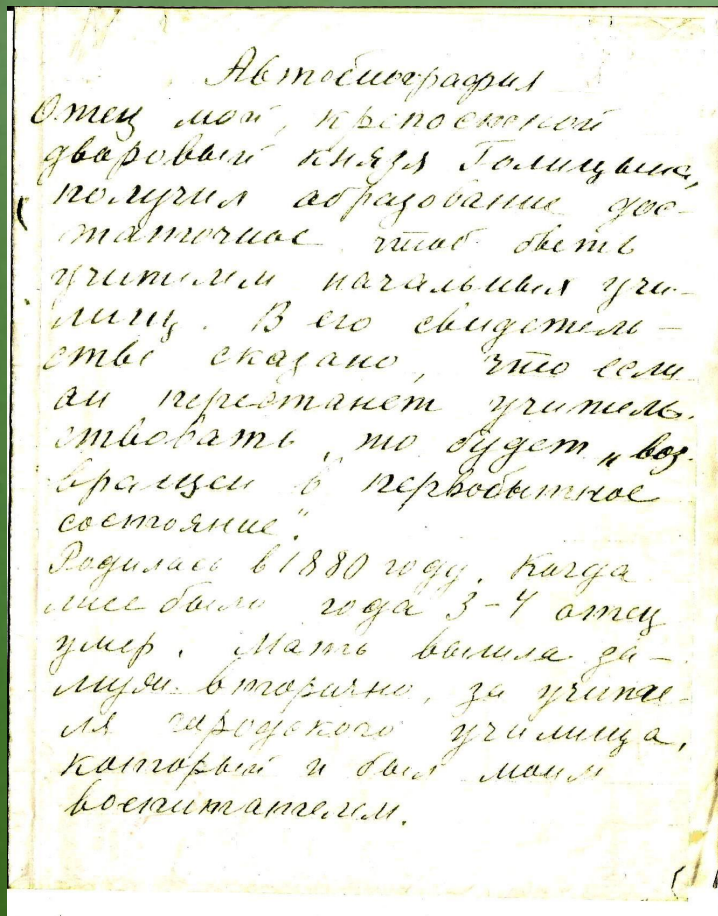 Автобиография
Отец мой, крепостной
дворовый князя Голицына,
получил образование дос-
таточное чтоб быть
учителем начальных учи-
лищ. В его свидетель-
стве сказано, что если
он перестанет учитель-
ствовать, то будет „воз-
вращен в первобытное
состояние".
Родилась в 1880 году. Когда
мне было года 3-4 отец
умер. Мать вышла за-
муж вторично, за учите-
ля городского училища,
который и был моим
воспитателем.